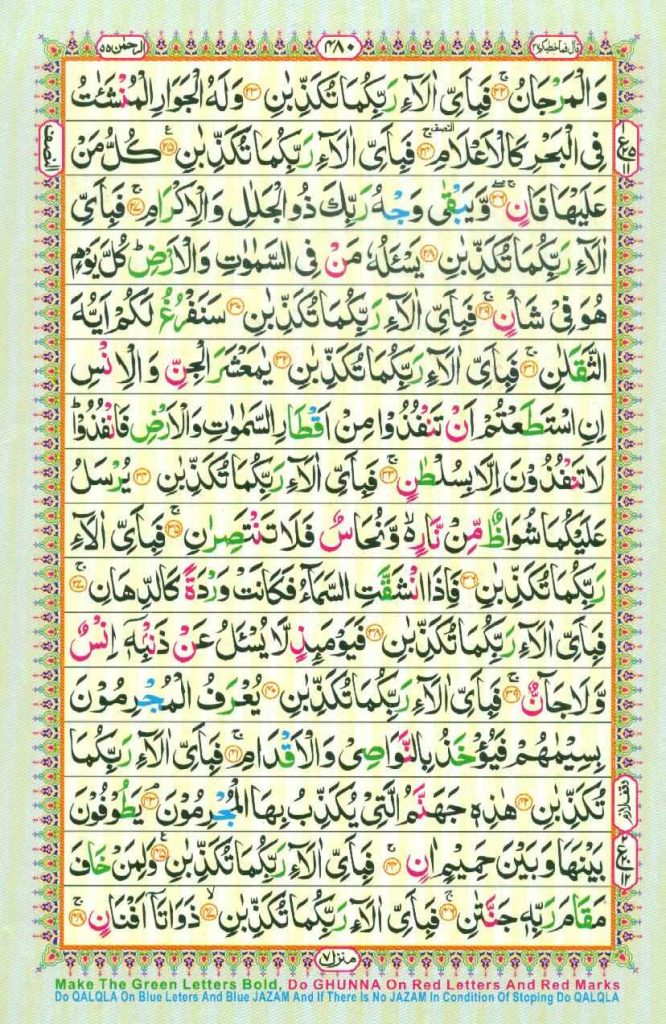 قال فما خطبكم ٢٧
٤٨٠
الرحمٰن ٥٥
وَالْمَرْجَانُ ۚ﴿۲۲﴾ فَبِاَىِّ اٰلَآءِ رَبِّكُمَا تُكَذِّبٰنِ ﴿۲۳﴾ وَلَهُ الْجَوَارِ الْمُنْشَئٰتُ
فِى الْبَحْرِ كَالْاَعْلَامِ ۚ﴿۲۴﴾ فَبِاَىِّ اٰلَآءِ رَبِّكُمَا تُكَذِّبٰنِ ﴿۲۵﴾ كُلُّ مَنْ
عَلَيْهَا فَانٍ ۚۖ﴿۲۶﴾ وَّيَبْقٰى وَجْهُ رَبِّكَ ذُو الْجَلٰلِ وَالْاِكْرَامِ ۚ﴿۲۷﴾ فَبِاَىِّ
اٰلَآءِ رَبِّكُمَا تُكَذِّبٰنِ ﴿۲۸﴾ يَسْئَلُهٗ مَنْ فِى السَّمٰوٰتِ وَالْاَرْضِ ؕ كُلَّ يَوْمٍ
هُوَ فِىْ شَاْنٍ ۚ﴿۲۹﴾ فَبِاَىِّ اٰلَآءِ رَبِّكُمَا تُكَذِّبٰنِ ﴿۳۰﴾ سَنَفْرُغُ لَكُمْ اَيُّهَ
الثَّقَلٰنِ ۚ﴿۳۱﴾ فَبِاَىِّ اٰلَآءِ رَبِّكُمَا تُكَذِّبٰنِ ﴿۳۲﴾ يٰمَعْشَرَ الْجِنِّ وَالْاِنْسِ
اِنِ اسْتَطَعْتُمْ اَنْ تَنْفُذُوْا مِنْ اَقْطَارِ السَّمٰوٰتِ وَالْاَرْضِ فَانْفُذُوْا ؕ
لَا تَنْفُذُوْنَ اِلَّا بِسُلْطٰنٍ ۚ﴿۳۳﴾ فَبِاَىِّ اٰلَآءِ رَبِّكُمَا تُكَذِّبٰنِ ﴿۳۴﴾ يُرْسَلُ
عَلَيْكُمَا شُوَاظٌ مِّنْ نَّارٍ ۙ وَّنُحَاسٌ فَلَا تَنْتَصِرٰنِ ۚ﴿۳۵﴾ فَبِاَىِّ اٰلَآءِ
رَبِّكُمَا تُكَذِّبٰنِ ﴿۳۶﴾ فَاِذَا انْشَقَّتِ السَّمَآءُ فَكَانَتْ وَرْدَةً كَالدِّهَانِ ۚ﴿۳۷﴾
فَبِاَىِّ اٰلَآءِ رَبِّكُمَا تُكَذِّبٰنِ ﴿۳۸﴾ فَيَوْمَئِذٍ لَّا يُسْئَلُ عَنْ ذَنْۢبِهٖۤ اِنْسٌ
وَّلَا جَآنٌّ ۚ﴿۳۹﴾ فَبِاَىِّ اٰلَآءِ رَبِّكُمَا تُكَذِّبٰنِ ﴿۴۰﴾ يُعْرَفُ الْمُجْرِمُوْنَ
بِسِيْمٰهُمْ فَيُؤْخَذُ بِالنَّوَاصِىْ وَالْاَقْدَامِ ۚ﴿۴۱﴾ فَبِاَىِّ اٰلَآءِ رَبِّكُمَا
تُكَذِّبٰنِ ﴿۴۲﴾ هٰذِهٖ جَهَنَّمُ الَّتِىْ يُكَذِّبُ بِهَا الْمُجْرِمُوْنَ ۘ﴿۴۳﴾ يَطُوْفُوْنَ
بَيْنَهَا وَبَيْنَ حَمِيْمٍ اٰنٍ ۚ﴿۴۴﴾ فَبِاَىِّ اٰلَآءِ رَبِّكُمَا تُكَذِّبٰنِ ﴿۴۵﴾ وَلِمَنْ خَافَ
مَقَامَ رَبِّهٖ جَنَّتٰنِ ۚ﴿۴۶﴾ فَبِاَىِّ اٰلَآءِ رَبِّكُمَا تُكَذِّبٰنِ ۙ﴿۴۷﴾ ذَوَاتَآ اَفْنَانٍ ۚ﴿۴۸﴾
منزل ٧
Make The Green Letters Bold, Do GHUNNA On Red Letters And Red Marks
Do QALQLA On Blue Leters And Blue JAZAM And If There Is No JAZAM In Condition Of Stoping Do QALQLA